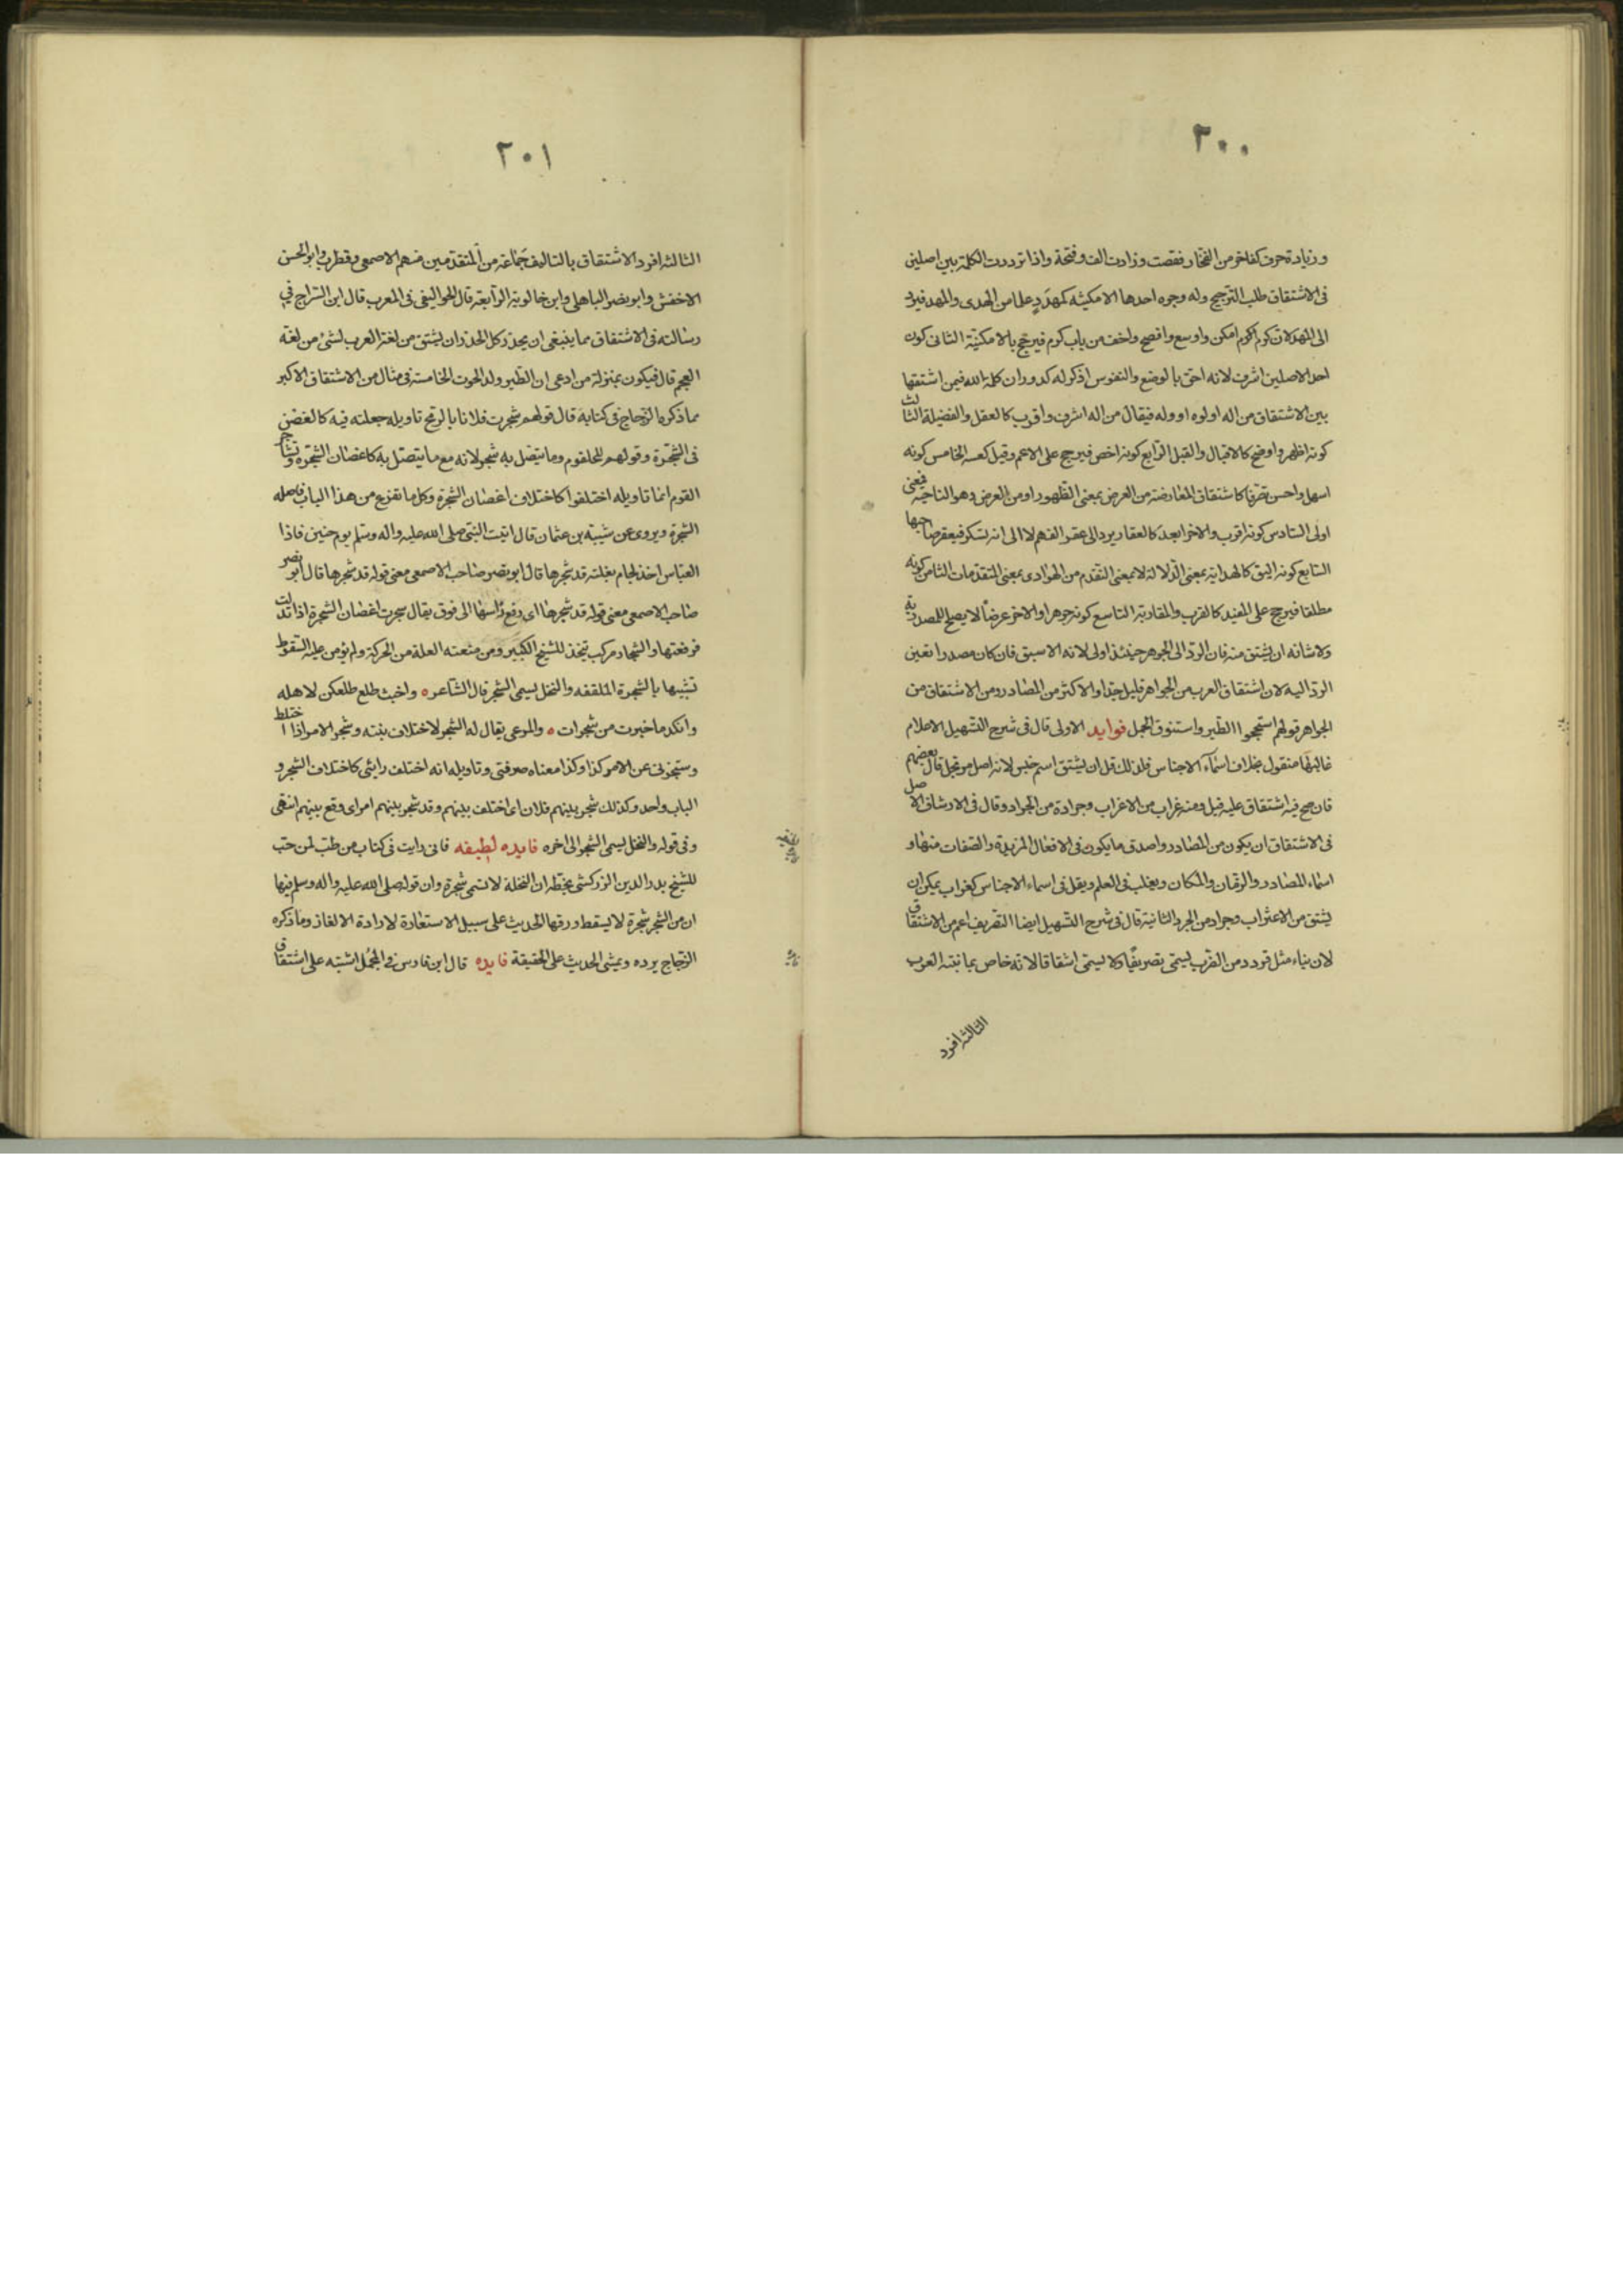 ٢٠٠
وزيادة حرف كفاخر من الفخار نقصت وزادت الف وفتحة واذا ترددت الكلمة بين اصلين
فى الاشتقاق طلب الترجيح وله وجوه احدها الامكنيه كمهدد علما من الهدى والمهد فيرد
الى المهد لان كوم اكرم امكن واوسع وافصح واخف من باب كرم فيرجح بالامكنية الثانى كون
احد الاصلين اشرف لانه احق بالوضع والنفوس اذكر له كدوران كلمة الله فيمن اشتقها
بين الاشتقاق من اله او لوه او وله فيقال من اله اشرف واقرب كالعقل والفضيلة الثالث
كونه اظهر واوضح كالاقبال والقبل الرابع كونه اخص فيرجح على الاعم وقيل كعسه الخامس كونه
اسهل واحسن تصرفا كاشتقاق المعارضة من العرض بمعنى الظهور او من العرض وهو الناحية فمعنى
اولى السادس كونه اقرب والاخر ابعد كالعقار يرد الى عقر الفهم لا الى انه تسكر فيعقر صاحبها
السابع كونه اليق كالهداية بمعنى الدلالة لا بمعنى التقدم من الهوادى بمعنى المتقدمات الثامن كونه
مطلقا فيرجح على المقيد كالقرب والمقاربة التاسع كونه جوهرا والاخر عرضا لا يصلح للمصدرية
ولا شانه ان يشتق منه فان الرد الى الجوهر حينئذ اولى لانه الاسبق فان كان مصدرا تعين
الرد اليه لان اشتقاق العرب من الجواهر قليل جدا والاكثر من المصادر ومن الاشتقاق من
الجواهر قولهم استحجر الطير واستنوق الجمل فوايد الاولى قال فى شرح التسهيل الاعلام
غالبها منقول بخلاف اسماء الاجناس فلذلك قل ان يشتق اسم جنس لانه اصل مرتجل قال بعضهم
فان صح فيه اشتقاق عليه قيل ومنه غراب من الاغراب وجرادة من الجراد وقال فى الارتشاف الاصل
فى الاشتقاق ان يكون من المصادر واصدق ما يكون فى الافعال المزيدة والصفات منها و
اسماء المصادر والزمان والمكان ويغلب فى العلم ويقل فى اسماء الاجناس كغراب يمكن ان
يشتق من الاغتراب وجراد من الجرد الثانية قال فى شرح التسهيل ايضا التصريف اعم من الاشتقاق
لان بناء مثل قردد من الضرب يسمى تصريفا ولا يسمى اشقاقا لانه خاص بما بنته العرب
الثالثه افرد
٢٠١
الثالثه افرد الاشتقاق بالتاليف جماعة من المتقدمين منهم الاصمعى وقطرب وابو الحسن
الاخفش وابو نصر الباهلى وابن خالوية الرابعة قال الجواليقى فى المعرب قال ابن السراج فى
رسالته فى الاشتقاق مما ينبغى ان يحذر كل الحذر ان يشتق من لغة العرب لشئ من لغة
العجم قال فيكون بمنزلة من ادعى ان الطير ولد الحوت الخامسة فى مثال من الاشتقاق الاكبر
مما ذكره الزجاج فى كتابه قال قولهم شجرت فلانا بالرمح تاويله جعلته فيه كالغضن
فى الشجرة وقولهم للحلقوم وما يتصل به شجر لانه مع ما يتصل به كاغصان الشجرة وتشاجر
القوم انما تاويله اختلفوا كاختلاف اغصان الشجرة وكل ما تفرع من هذا الباب فاصله
الشجرة ويروى عن شيبة بن عثمان قال اتيت النبى صلى الله عليه واله وسلم يوم حنين فاذا
العباس اخذ لجام بغلته قد شجرها قال ابو نصر صاحب الاصمعى معنى قوله قد شجرها قال ابو نصر
صاحب الاصمعى معنى قوله قد شجرها اى رفع راسها الى فوق يقال شجرت اغصان الشجرة اذا تدلت
فرفعتها والشجار مركب يتخذ للشيخ الكبير ومن منعته العلة من الحركة ولم يؤمن عليه السقوط
تشبيها بالشجرة الملتفه والنخل يسمى الشجر قال الشاعر ه واخبث طلع طلعكن لاهله
وانكد ما خبرت من شجرات ه والمرعى يقال له الشجر لاختلاف نبته وشجر الامر اذا اختلط
وشجرنى عن الامر كذا وكذا معناه صرفنى وتاويله انه اختلف رايى كاختلاف الشجر و
الباب واحد وكذلك شجر بينهم فلان اى اختلف بينهم وقد شجر بينهم امر اى وقع بينهم انتهى
وفى قوله والنخل يسمى الشجر الى اخره فايده لطيفه فانى رايت فى كتاب من طب لمن حب
للشيخ بدر الدين الزركشى بخطه ان النخلة لا تسمى شجرة وان قوله صلى الله عليه واله وسلم فيها
ان من الشجر شجرة لا يسقط ورقها الحديث على سبيل الاستعارة لارادة الالغاز وما ذكره
الزجاج يرده ويمشى الحديث على الحقيقة فايده قال ابن فارس فى المجمل اشتبه على اشتقاق